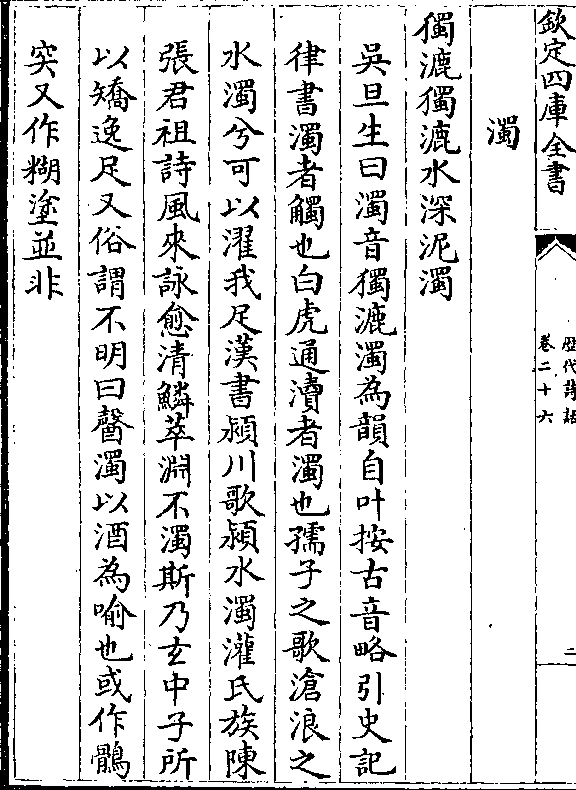 欽定四庫全書
歷代詩話
卷二十六
二
濁
獨漉獨漉水深泥濁
吳旦生曰濁音獨漉濁為韻自叶按古音略引史記
律書濁者觸也白虎通瀆者濁也孺子之歌滄浪之
水濁兮可以濯我足漢書潁川歌潁水濁灌氏族陳
張君祖詩風來詠愈清鱗萃淵不濁斯乃玄中子所
以矯逸足又俗謂不明曰醫濁以酒為喻也或作鶻
突又作糊塗並非